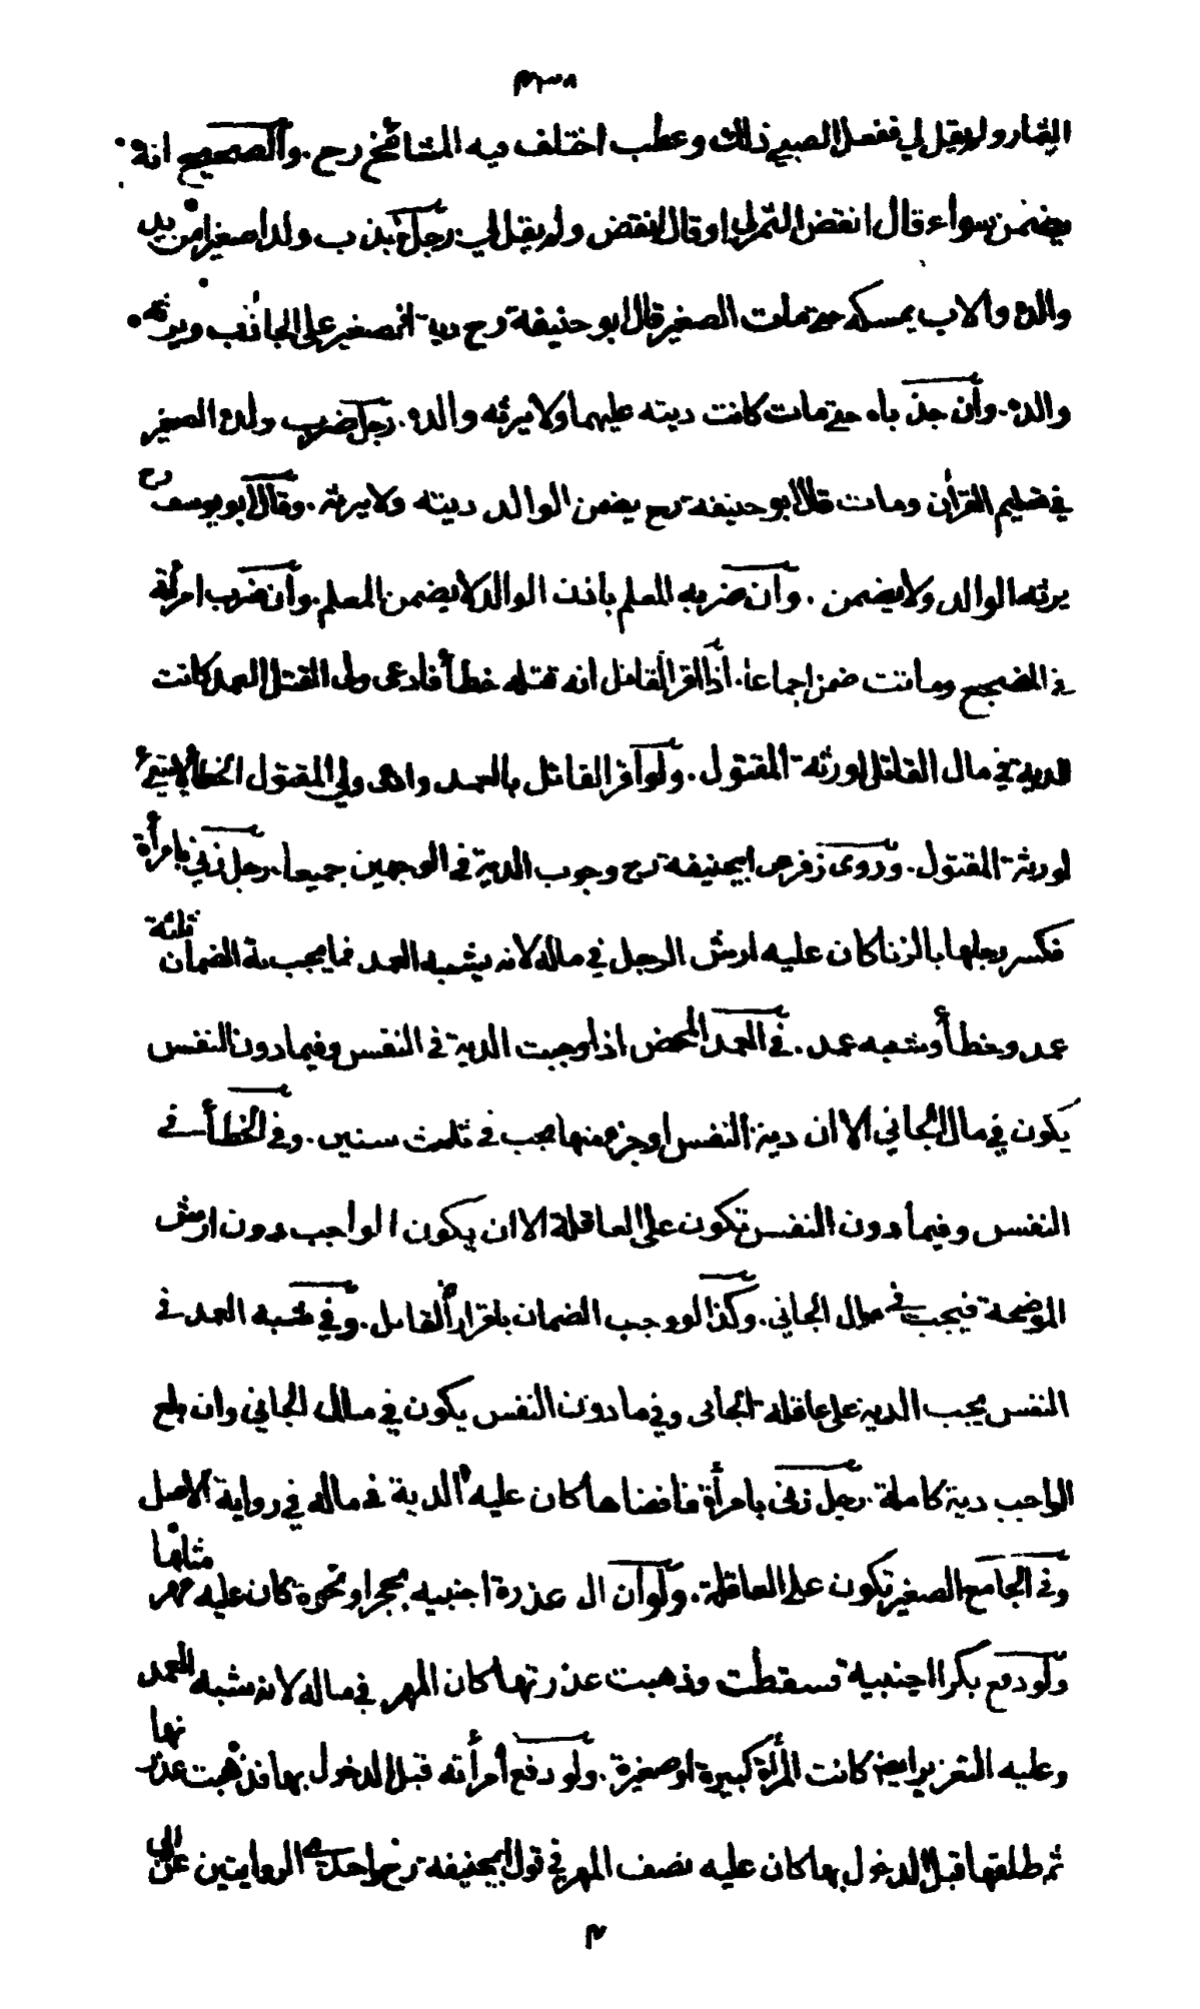 ٣٣٨
الثمار ولم يقل لي ففعل الصبي ذلك وعطب اختلف فيه المشائخ رح . والصحيح انه
يضمن سواء قال انفض الثمر لي او قال انفض ولم يقل لي . رجل جذب ولدا صغيرا من يد
والده والاب يمسكه حتى مات الصغير قال ابو حنيفة رح دية الصغير على الجاذب ويرثه
والده . وان جذباه حتى مات كانت ديته عليهما ولا يرثه والده . رجل ضرب ولده الصغير
في تعليم القرأن ومات قال ابو حنيفة رح يضمن الوالد ديته ولا يرثه . وقال ابو يوسف رح
يرثه الوالد ولا يضمن . وان ضربه المعلم باذن الوالد لا يضمن المعلم . وان ضرب امرأته
في المضجع وماتت ضمن اجماعا . اذا اقر القاتل انه قتله خطأ فادعى ولي القتيل العمد كانت
الدية في مال القاتل لورثة المقتول . ولو اقر القاتل بالعمد وادعى ولي المقتول الخطأ لا شيء
لورثة المقتول . وروى زفر عن ابي حنيفة رح وجوب الدية في الوجهين جميعا . رجل زنى بامرأة
فكسر رجلها بالزنا كان عليه ارش الرجل في ماله لانه يشبه العمد فما يجب به الضمان ثلثة
عمد وخطأ وشبه عمد . في العمد المحض اذا وجبت الدية في النفس وفيما دون النفس
يكون في مال الجاني الا ان دية النفس او جزء منها يجب في ثلث سنين . وفي الخطأ في
النفس وفيما دون النفس تكون على العاقلة الا ان يكون الواجب دون ارش
الموضحة فيجب في مال الجاني . وكذا لو وجب الضمان باقرار القاتل . وفي شبه العمد في
النفس يجب الدية على عاقلة الجاني وفي ما دون النفس يكون في مال الجاني وان بلغ
الواجب دية كاملة . رجل زنى بامرأة فافضاها كان عليه الدية في ماله في رواية الاصل
وفي الجامع الصغير تكون على العاقلة . ولو ان ال عذرة اجنبيه بحجر او نحوه كان عليه مهر مثلها
ولو دفع بكرا اجنبية فسقطت وذهبت عذرتها كان المهر في ماله لانه شبه العمد
وعليه التعزير ايضا كانت المرأة كبيرة او صغيرة . ولو دفع أمرأته قبل الدخول بها فذهبت عذرتها
ثم طلقها قبل الدخول بها كان عليه نصف المهر في قول ابي حنيفة رح واحدى الروايتين عن ابي